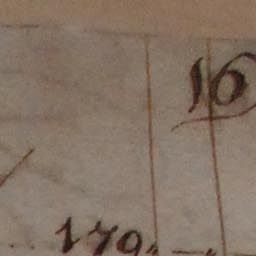 16
179